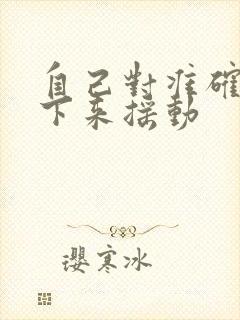 自己對準確
下來搖動
瓔寒冰